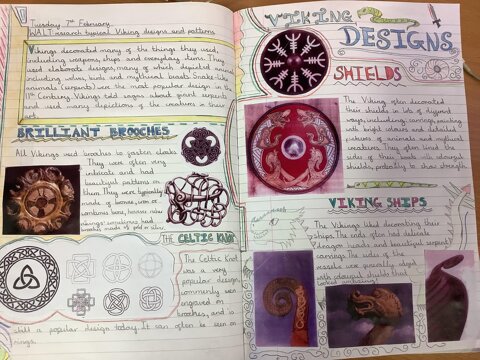 Tuesday 7th February
WALT: research typical Viking designs and patterns
Vikings decorated many of the things they used,
including weapons, ships and everyday items. They
used elaborate designs, many of which depicted animals
including wolves, birds and mythical beasts. Snake-like
animals (serpents) were the most popular design in the
11th Century. Vikings told sagas about giant serpents
and used many depictions of the creatures in their
art.
BRILLIANT BROOCHES
All Vikings used brooches to fasten cloaks.
They were often very
intricate and had
beautiful patterns on
them. They were typically
made of bronze, iron or
sometimes bone, however richer
vikings sometimes had
brooches made of gold or silver.
THE CELTIC KNOT
The Celtic Knot
was a very
popular design
commonly seen
engraved on
brooches, and is
still a popular design today. It can often be seen on
rings.
VIKING
DESIGNS
SHIELDS
The Vikings often decorated
their shields in lots of different
ways, including: carvings, painting
with bright colours and detailed
pictures of animals and mythical
creatures. They often lined the
sides of their boats with colourful
shields, probably to show strength.
VIKING SHIPS
The Vikings liked decorating their
ships. The ends often had elaborate
dragon heads and beautiful serpent
carvings. The sides of the
vessels were generally aligned
with colourful shields that
looked